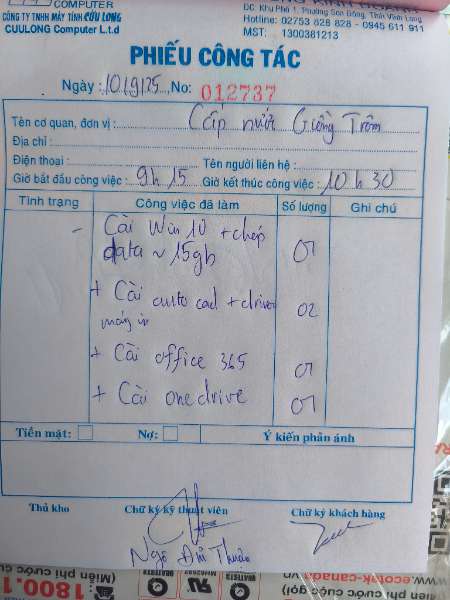 COMPUTER
CÔNG TY TNHH MÁY TÍNH CỬU LONG
CUULONG Computer L.t.d
DC: Khu Phố 1, Phường Sơn Đông, Tỉnh Vĩnh Long
Hotline: 02753 828 828 - 0945 611 911
MST: 1300381213
PHIẾU CÔNG TÁC
Ngày: 10/9/25 No: 012737
Tên cơ quan, đơn vị: Cấp nước Giồng Trôm
Địa chỉ:
Điện thoại: Tên người liên hệ:
Giờ bắt đầu công việc: 9h 15 Giờ kết thúc công việc: 10h30
Tình trạng Công việc đã làm Số lượng Ghi chú
- Cài Win 10 + chép
data ~ 15gb 01
+ Cài auto cad + driver 02
máy in
+ Cài office 365 01
+ Cài onedrive 01
Tiền mặt: Nợ: Ý kiến phản ánh
Thủ kho Chữ ký kỹ thuật viên Chữ ký khách hàng
Ngô Thuận
(Miễn phí cước
1800.1
vn
www.ecotek-canada
gọi)
(Miễn phí cước cu